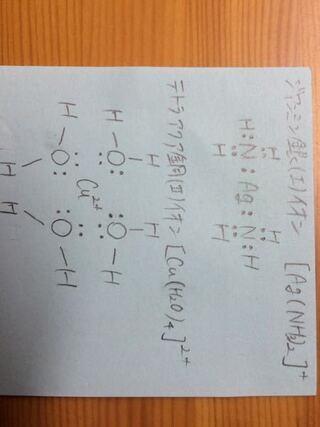 ジアンミン銀(I)イオン= [Ag(NH₃)₂]⁺
H H
H:N:Ag:N:H
H H
テトラアクア銅(II)イオン= [Cu(H₂O)₄]²⁺
H H
H-O: :O-H
Cu²⁺
H-O: :O-H
H H